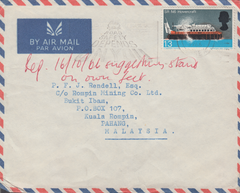 BY AIR MAIL
PAR AVION
1/3
16/10/66 suggesting stand
on own feet.
P. F. J. Bendall, Esq.
C/o Rompin Mining Co. Ltd.
Bukit Ibam,
P.O.BOX 107,
Kuala Rompin,
PAHANG,
MALAYSIA.